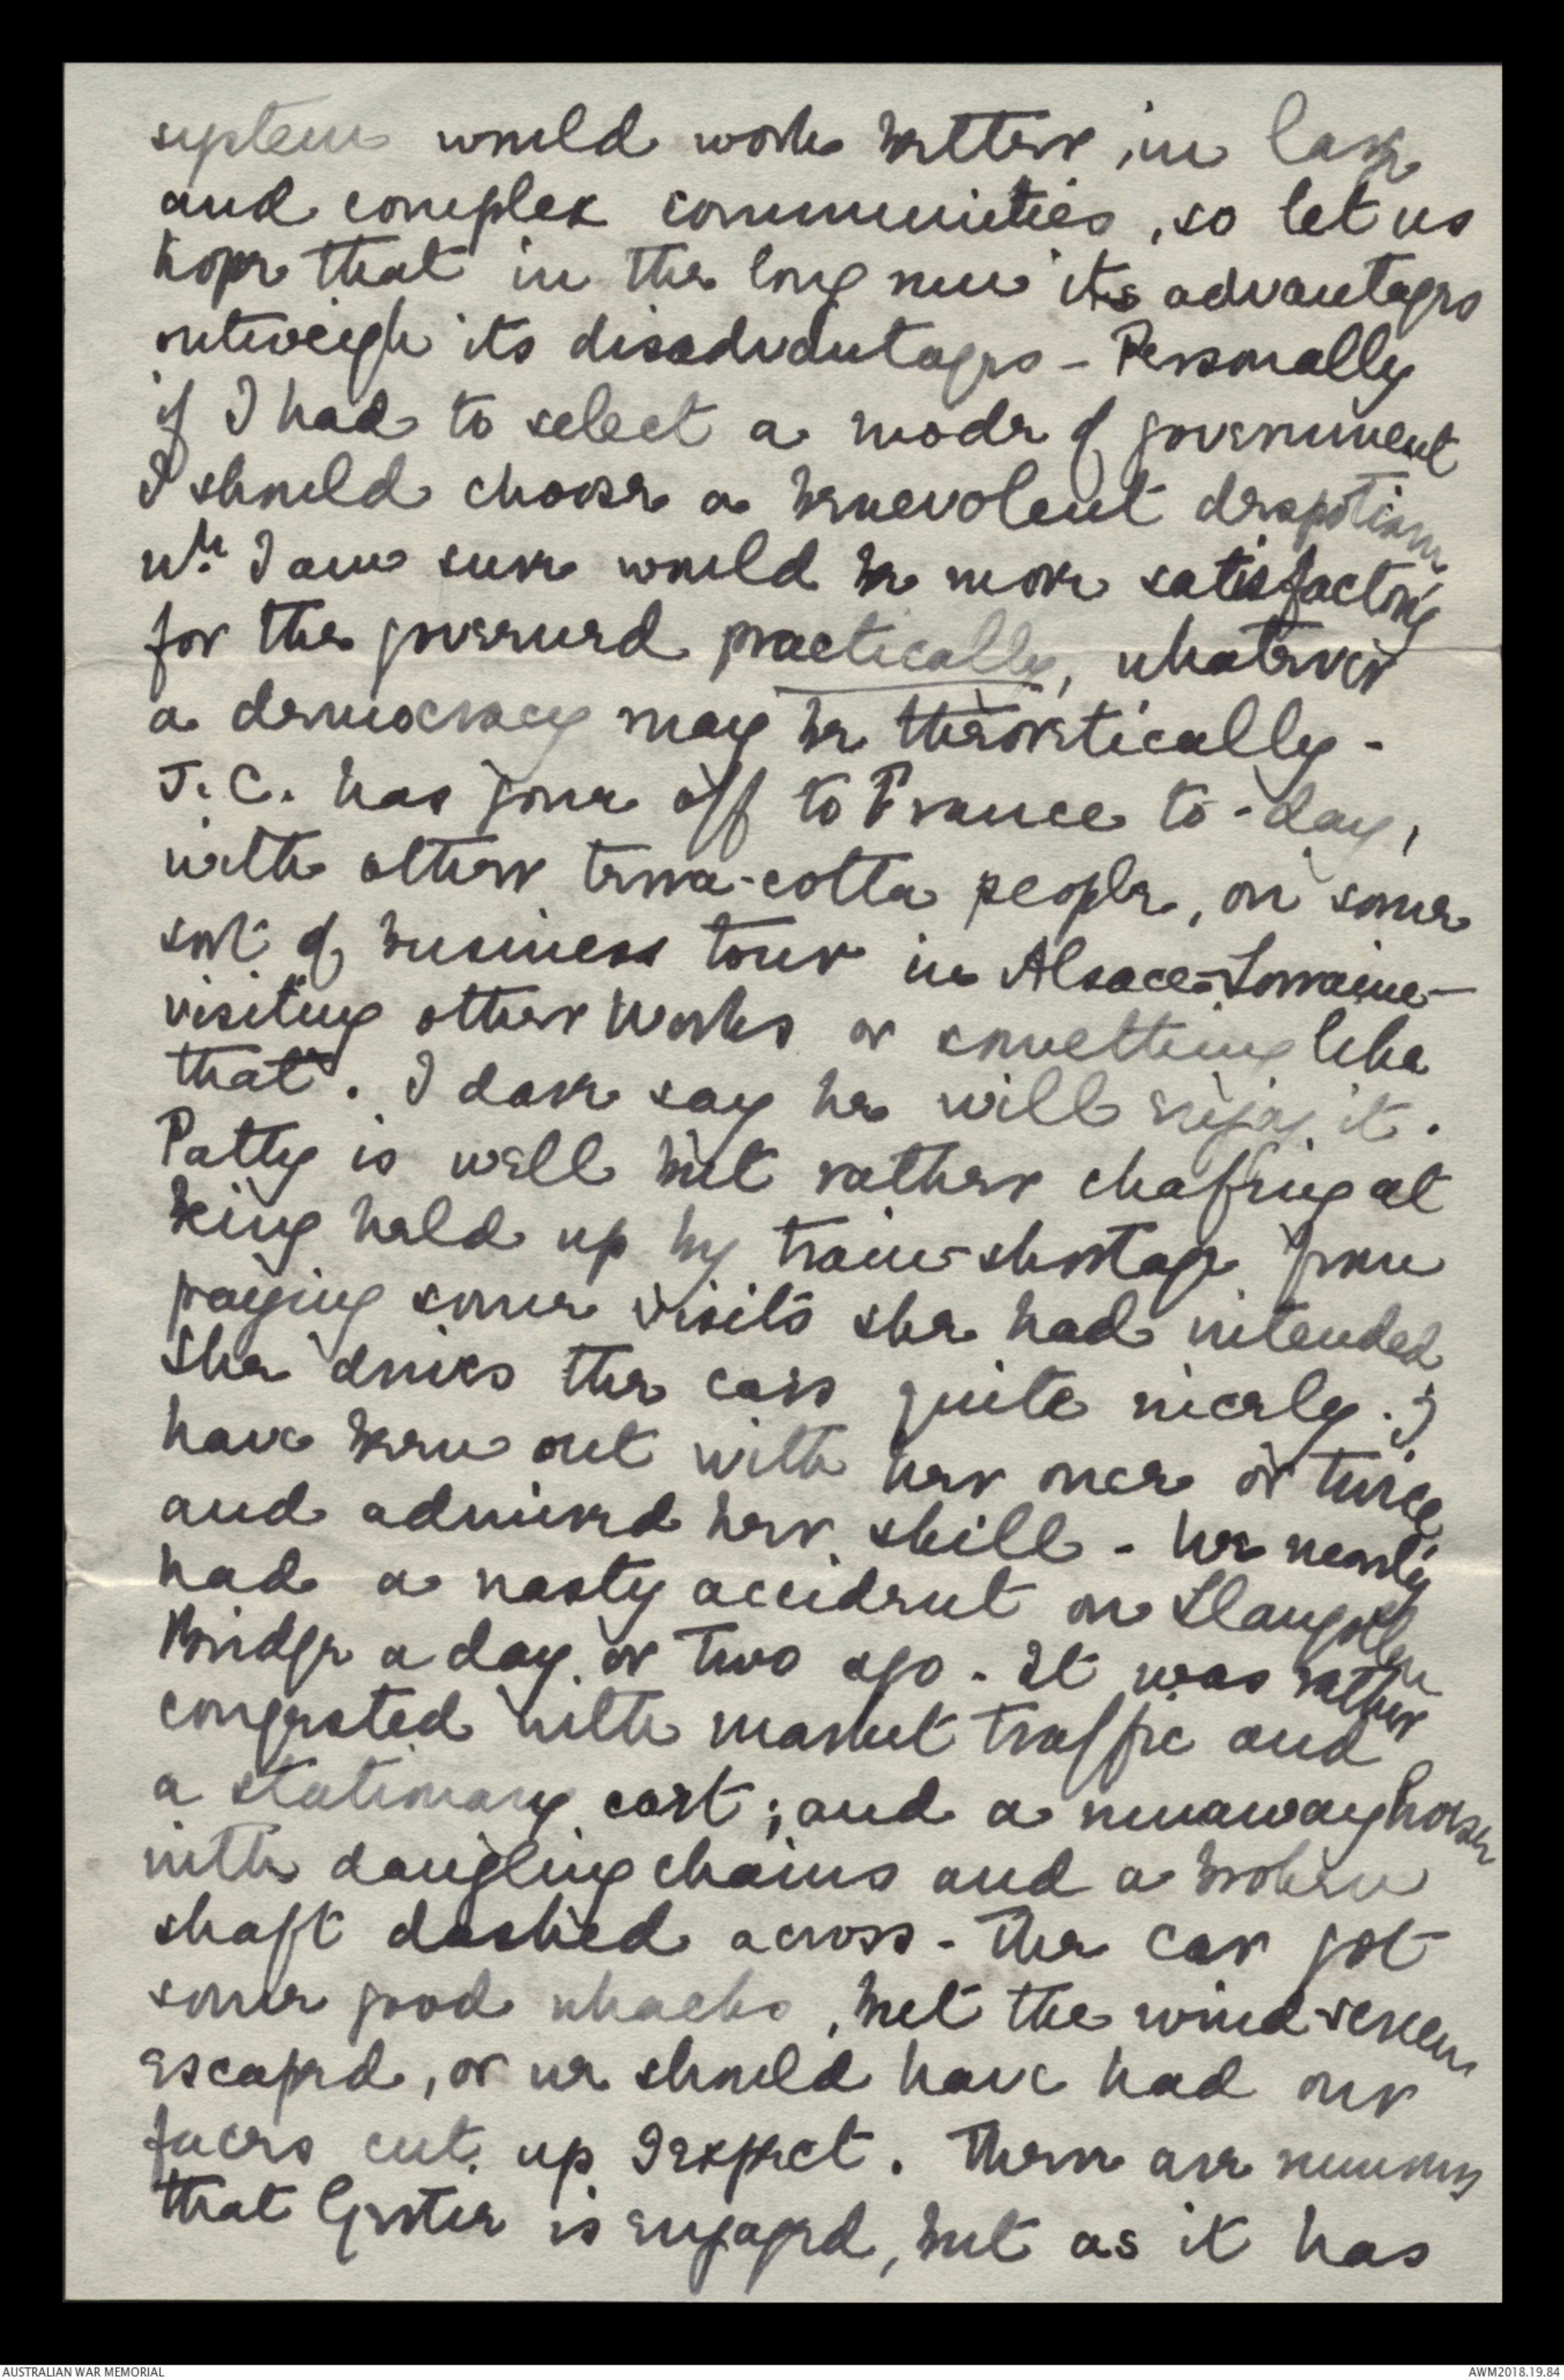 system would work better in large
and complex communities, so let us
hope that in the long run its advantages
outweigh its disadvantages - Personally
if I had to select a mode of government
I should choose a benevolent despotism
wh. I am sure would be more satisfactory
for the governed practically, whatever
a democracy may be theoretically -
J.C. has gone off to France to-day,
with other terra-cotta people, on some
sort of business tour in Alsace-Lorraine -
visiting other works or something like
that. I dare say he will enjoy it.
Patty is well but rather chafing at
being held up by train-shortage from
paying some visits she had intended
She drives the cars quite nicely. I
have been out with her once or twice
and admired her skill - We nearly
had a nasty accident on Llangollen
Bridge a day or two ago - It was rather
congested with market traffic and
a stationary cart; and a runaway horse
with dangling chains and a broken
shaft dashed across - The car got
some good whacks, but the windscreen
escaped, or we should have had our
faces cut up I expect. There are rumours
that is engaged, but as it has
AUSTRALIAN WAR MEMORIAL
AWM2018.19.84